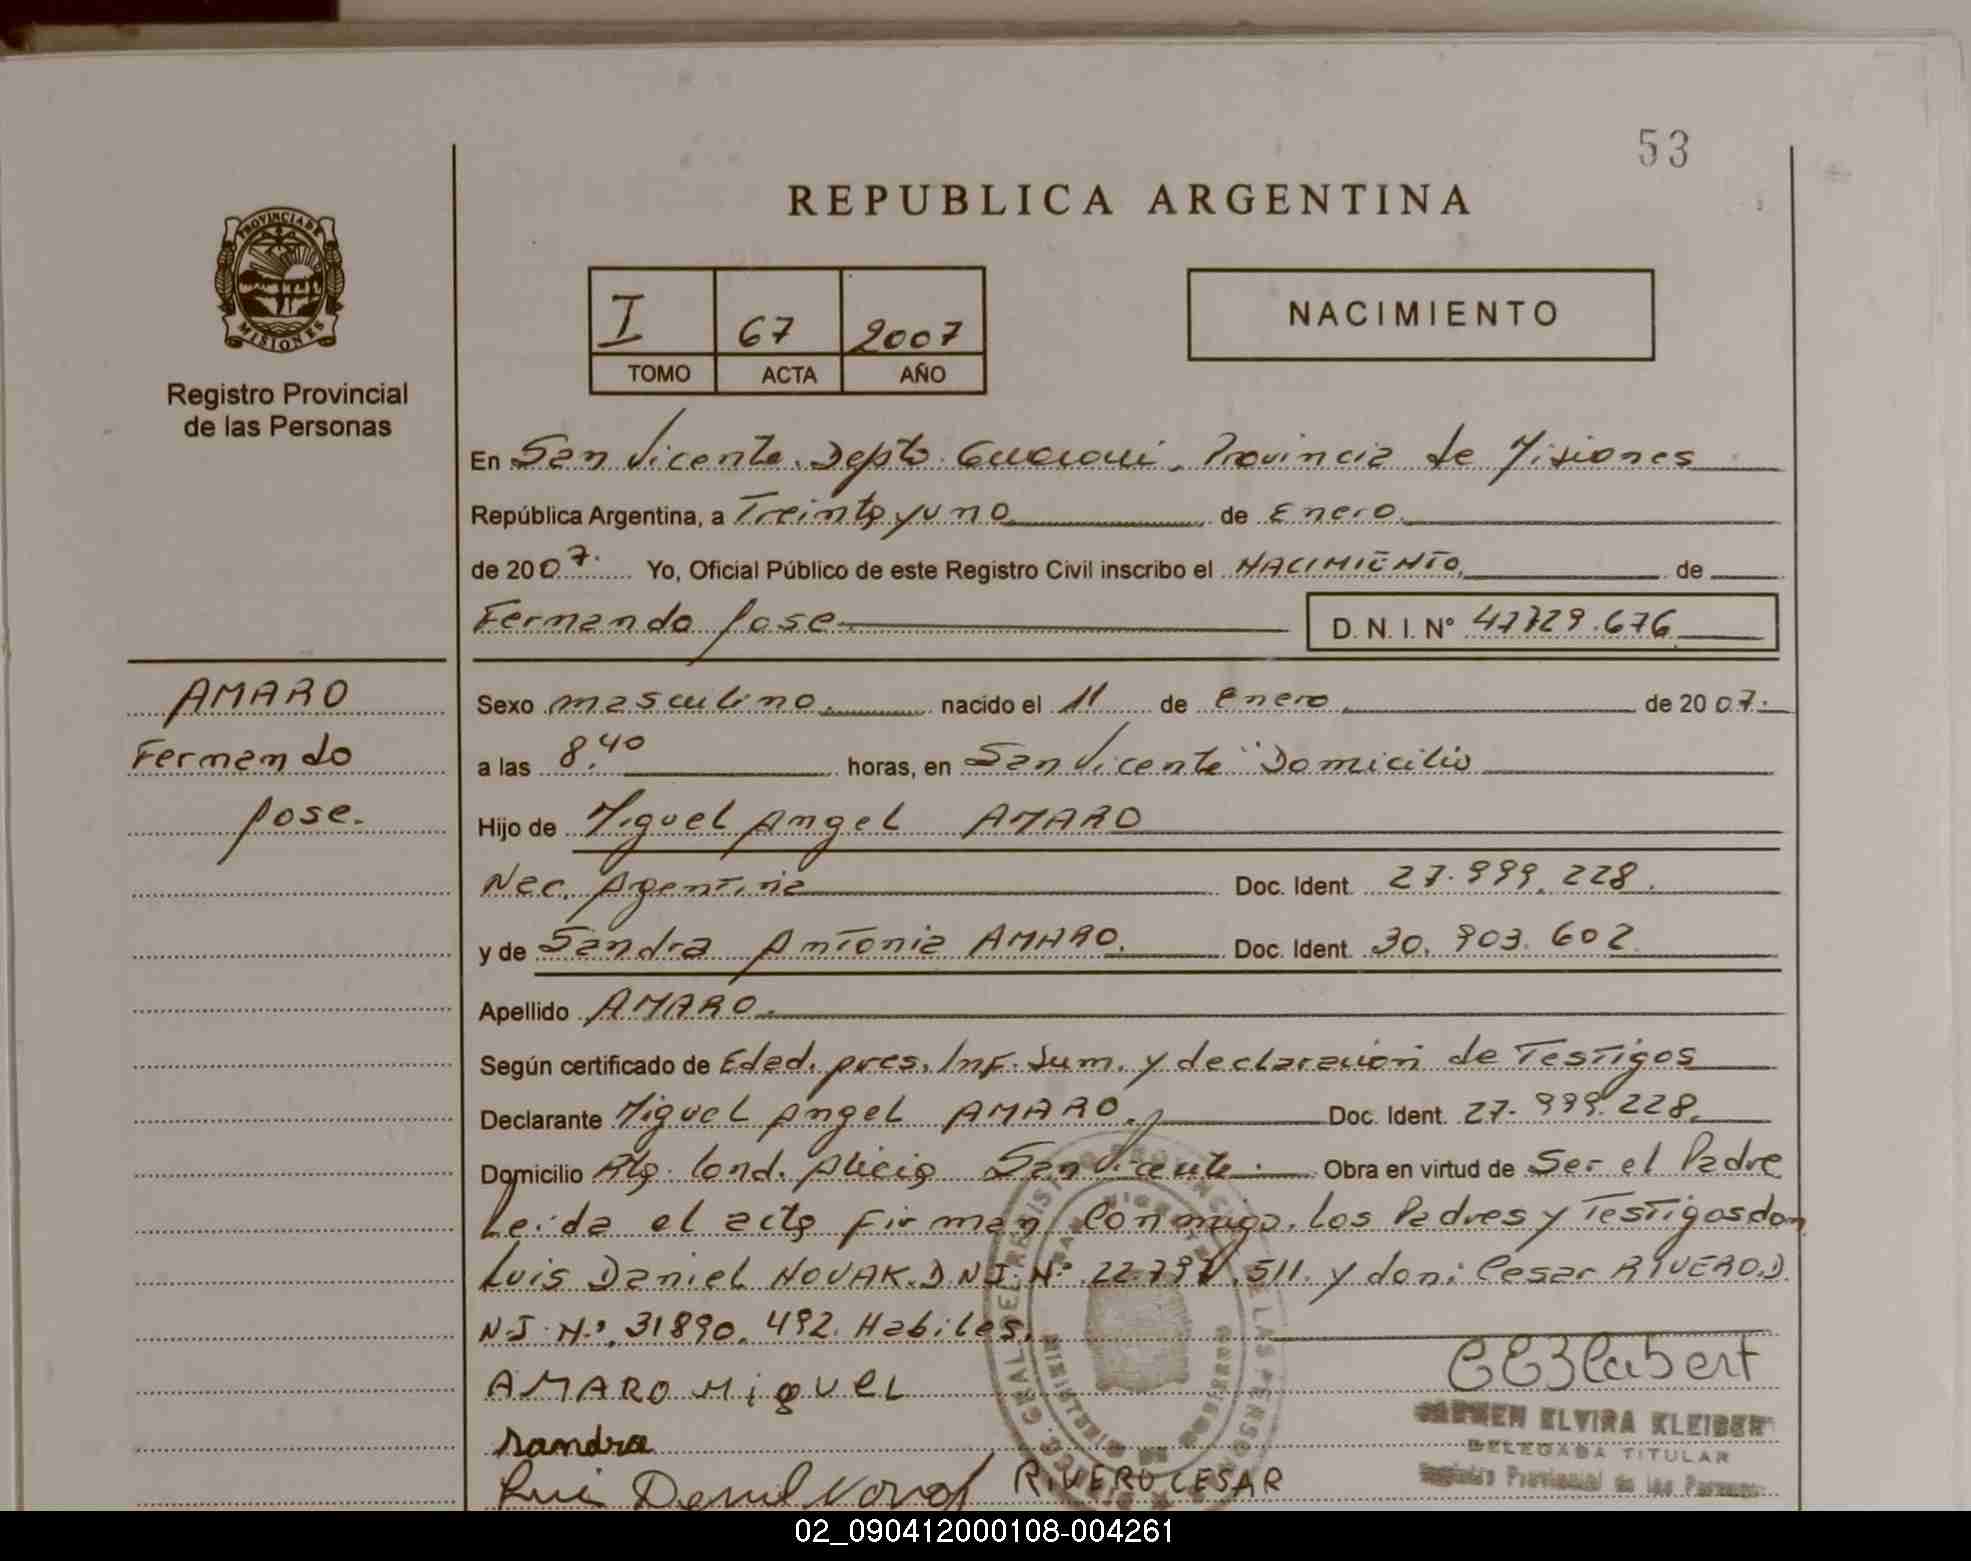 53
REPUBLICA ARGENTINA
PROVINCIA DE
MISIONES
Registro Provincial
de las Personas
I 67 2007
TOMO ACTA AÑO
NACIMIENTO
En San Vicente. Depto. Guarani. Provincia de Misiones
República Argentina, a Treinta y uno de Enero.
de 2007. Yo, Oficial Público de este Registro Civil inscribo el NACIMIENTO. de
Fernando Jose D. N. I. Nº 47729.676
AMARO
Fernando
Jose.
Sexo masculino. nacido el 11 de enero de 2007.
a las 8,40 horas, en San Vicente "Domicilio
Hijo de Miguel Angel AMARO
Nac. Argentina Doc. Ident. 27.999.228.
y de Sandra Antonia AMARO. Doc. Ident. 30.903.602
Apellido AMARO.
Según certificado de Edad. pres. Inf. Sum. y declaracion de Testigos
Declarante Miguel Angel AMARO. Doc. Ident. 27.999.228.
Domicilio Alicia San Vicente. Obra en virtud de Ser el Padre
Leida el acta firman Conmigo. los Padres y Testigos don
Luis Daniel NOVAK. DNI. Nº 511. y don: Cesar RIVERO. D.
N.I. Nº. 31890.492. Habiles.
AMARO MiguEL
Sandra
RIVERO CESAR
CARMEN ELVIRA KLEIBER
DELEGADA TITULAR
Registro Provincial de las Personas
02_090412000108-004261